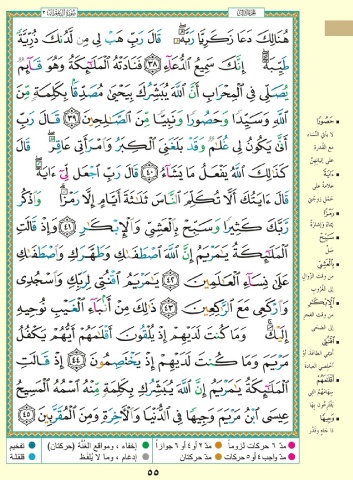 الجزء الثالث
سورة آل عمران ٣
هُنَالِكَ دَعَا زَكَرِيَّا رَبَّهُۥ ۖ قَالَ رَبِّ هَبْ لِى مِن لَّدُنكَ ذُرِّيَّةً
طَيِّبَةً ۖ إِنَّكَ سَمِيعُ ٱلدُّعَآءِ ٣٨ فَنَادَتْهُ ٱلْمَلَٰٓئِكَةُ وَهُوَ قَآئِمٌ
يُصَلِّى فِى ٱلْمِحْرَابِ أَنَّ ٱللَّهَ يُبَشِّرُكَ بِيَحْيَىٰ مُصَدِّقًۢا بِكَلِمَةٍ مِّنَ
ٱللَّهِ وَسَيِّدًا وَحَصُورًا وَنَبِيًّا مِّنَ ٱلصَّٰلِحِينَ ٣٩ قَالَ رَبِّ
أَنَّىٰ يَكُونُ لِى غُلَٰمٌ وَقَدْ بَلَغَنِىَ ٱلْكِبَرُ وَٱمْرَأَتِى عَاقِرٌ ۖ قَالَ
كَذَٰلِكَ ٱللَّهُ يَفْعَلُ مَا يَشَآءُ ٤٠ قَالَ رَبِّ ٱجْعَل لِّىٓ ءَايَةً ۖ
قَالَ ءَايَتُكَ أَلَّا تُكَلِّمَ ٱلنَّاسَ ثَلَٰثَةَ أَيَّامٍ إِلَّا رَمْزًا ۗ وَٱذْكُر
رَّبَّكَ كَثِيرًا وَسَبِّحْ بِٱلْعَشِىِّ وَٱلْإِبْكَٰرِ ٤١ وَإِذْ قَالَتِ
ٱلْمَلَٰٓئِكَةُ يَٰمَرْيَمُ إِنَّ ٱللَّهَ ٱصْطَفَىٰكِ وَطَهَّرَكِ وَٱصْطَفَىٰكِ
عَلَىٰ نِسَآءِ ٱلْعَٰلَمِينَ ٤٢ يَٰمَرْيَمُ ٱقْنُتِى لِرَبِّكِ وَٱسْجُدِى
وَٱرْكَعِى مَعَ ٱلرَّٰكِعِينَ ٤٣ ذَٰلِكَ مِنْ أَنۢبَآءِ ٱلْغَيْبِ نُوحِيهِ
إِلَيْكَ ۚ وَمَا كُنتَ لَدَيْهِمْ إِذْ يُلْقُونَ أَقْلَٰمَهُمْ أَيُّهُمْ يَكْفُلُ
مَرْيَمَ وَمَا كُنتَ لَدَيْهِمْ إِذْ يَخْتَصِمُونَ ٤٤ إِذْ قَالَتِ
ٱلْمَلَٰٓئِكَةُ يَٰمَرْيَمُ إِنَّ ٱللَّهَ يُبَشِّرُكِ بِكَلِمَةٍ مِّنْهُ ٱسْمُهُ ٱلْمَسِيحُ
عِيسَى ٱبْنُ مَرْيَمَ وَجِيهًا فِى ٱلدُّنْيَا وَٱلْءَاخِرَةِ وَمِنَ ٱلْمُقَرَّبِينَ ٤٥
حَصُورًا
لا يأتي النساء
مع القدرة
على إتيانهنّ
ءَايَةً
علامة على
حمل زوجتي
رَمْزًا
إيماءً وإشارة
سَبِّحْ
صلّ
بِالْعَشِيِّ
من وقت الزوال
إلى الغروب
الْإِبْكَارِ
من وقت الفجر
إلى الضحى
اقْنُتِي
أديمي الطاعة أو
أخلصي العبادة
أَقْلَامَهُمْ
سهامهم التي
يقترعون بها
وَجِيهًا
ذا جاه وقدر
مدّ ٦ حركات لزوماً
مدّ ٢ أو ٤ أو ٦ جوازاً
إخفاء، ومواقع الغنّة (حركتان)
تفخيم
مدّ واجب ٤ أو ٥ حركات
مدّ حركتان
إدغام ، وما لا يُلفظ
قلقلة
٥٥